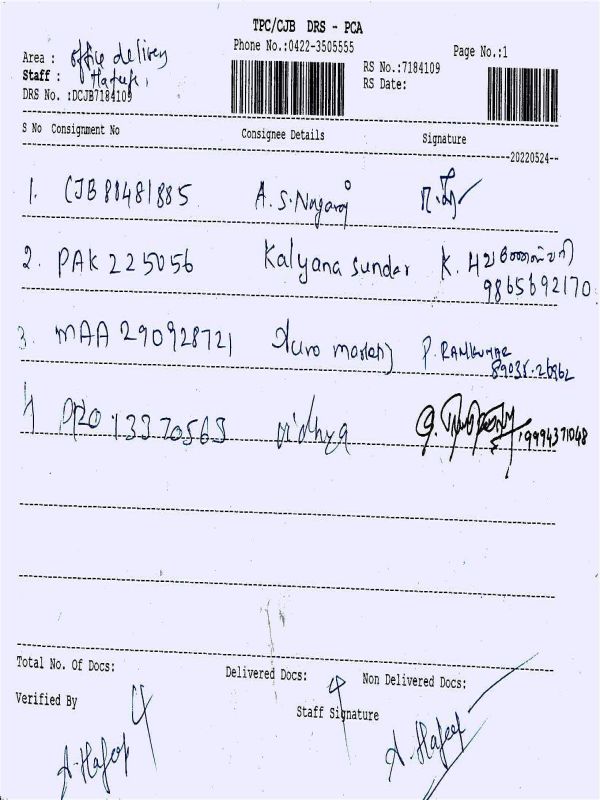 TPC/CJB DRS - PCA
Phone No.:0422-3505555
Page No.:1
Area : office delivery
Staff : Hafeef,
DRS No. :DCJB7184109
RS No.:7184109
RS Date:
S No Consignment No Consignee Details Signature
20220524--
1. CJB 80481885 A.S.Nagaraj
2. PAK 225056 Kalyana sunder K.
9865692170
3. MAA 290928721 P. RAMKUMAR
4 PRO 13370563 vidhya 9994371048
Total No. Of Docs: 4 Delivered Docs: 4 Non Delivered Docs:
Verified By Staff Signature
A. Hafeef A. Hafeef